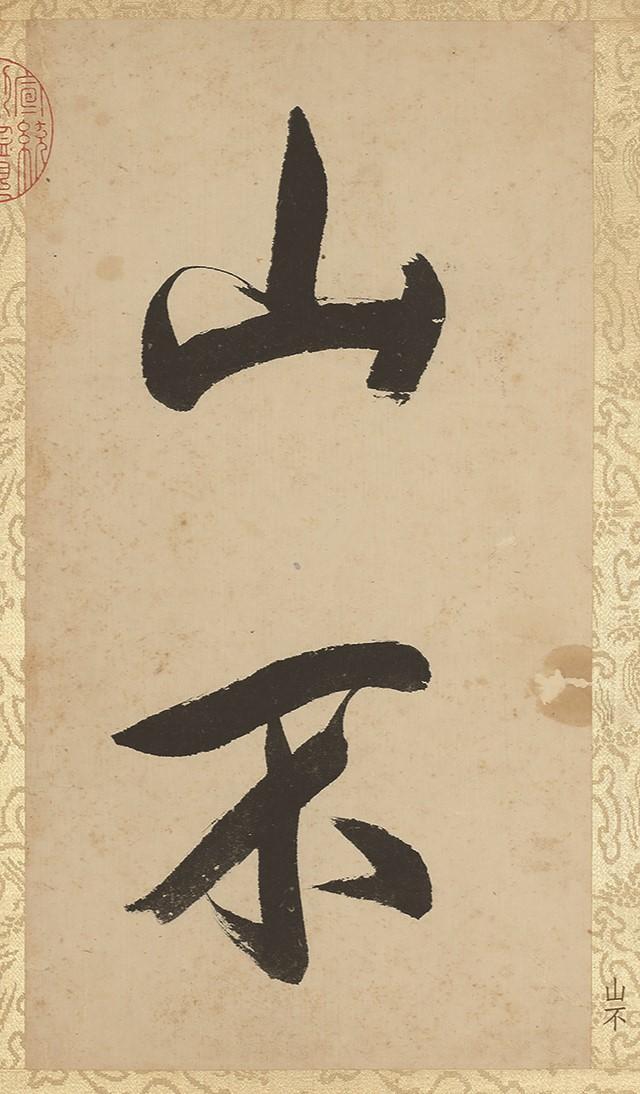 山不
山不